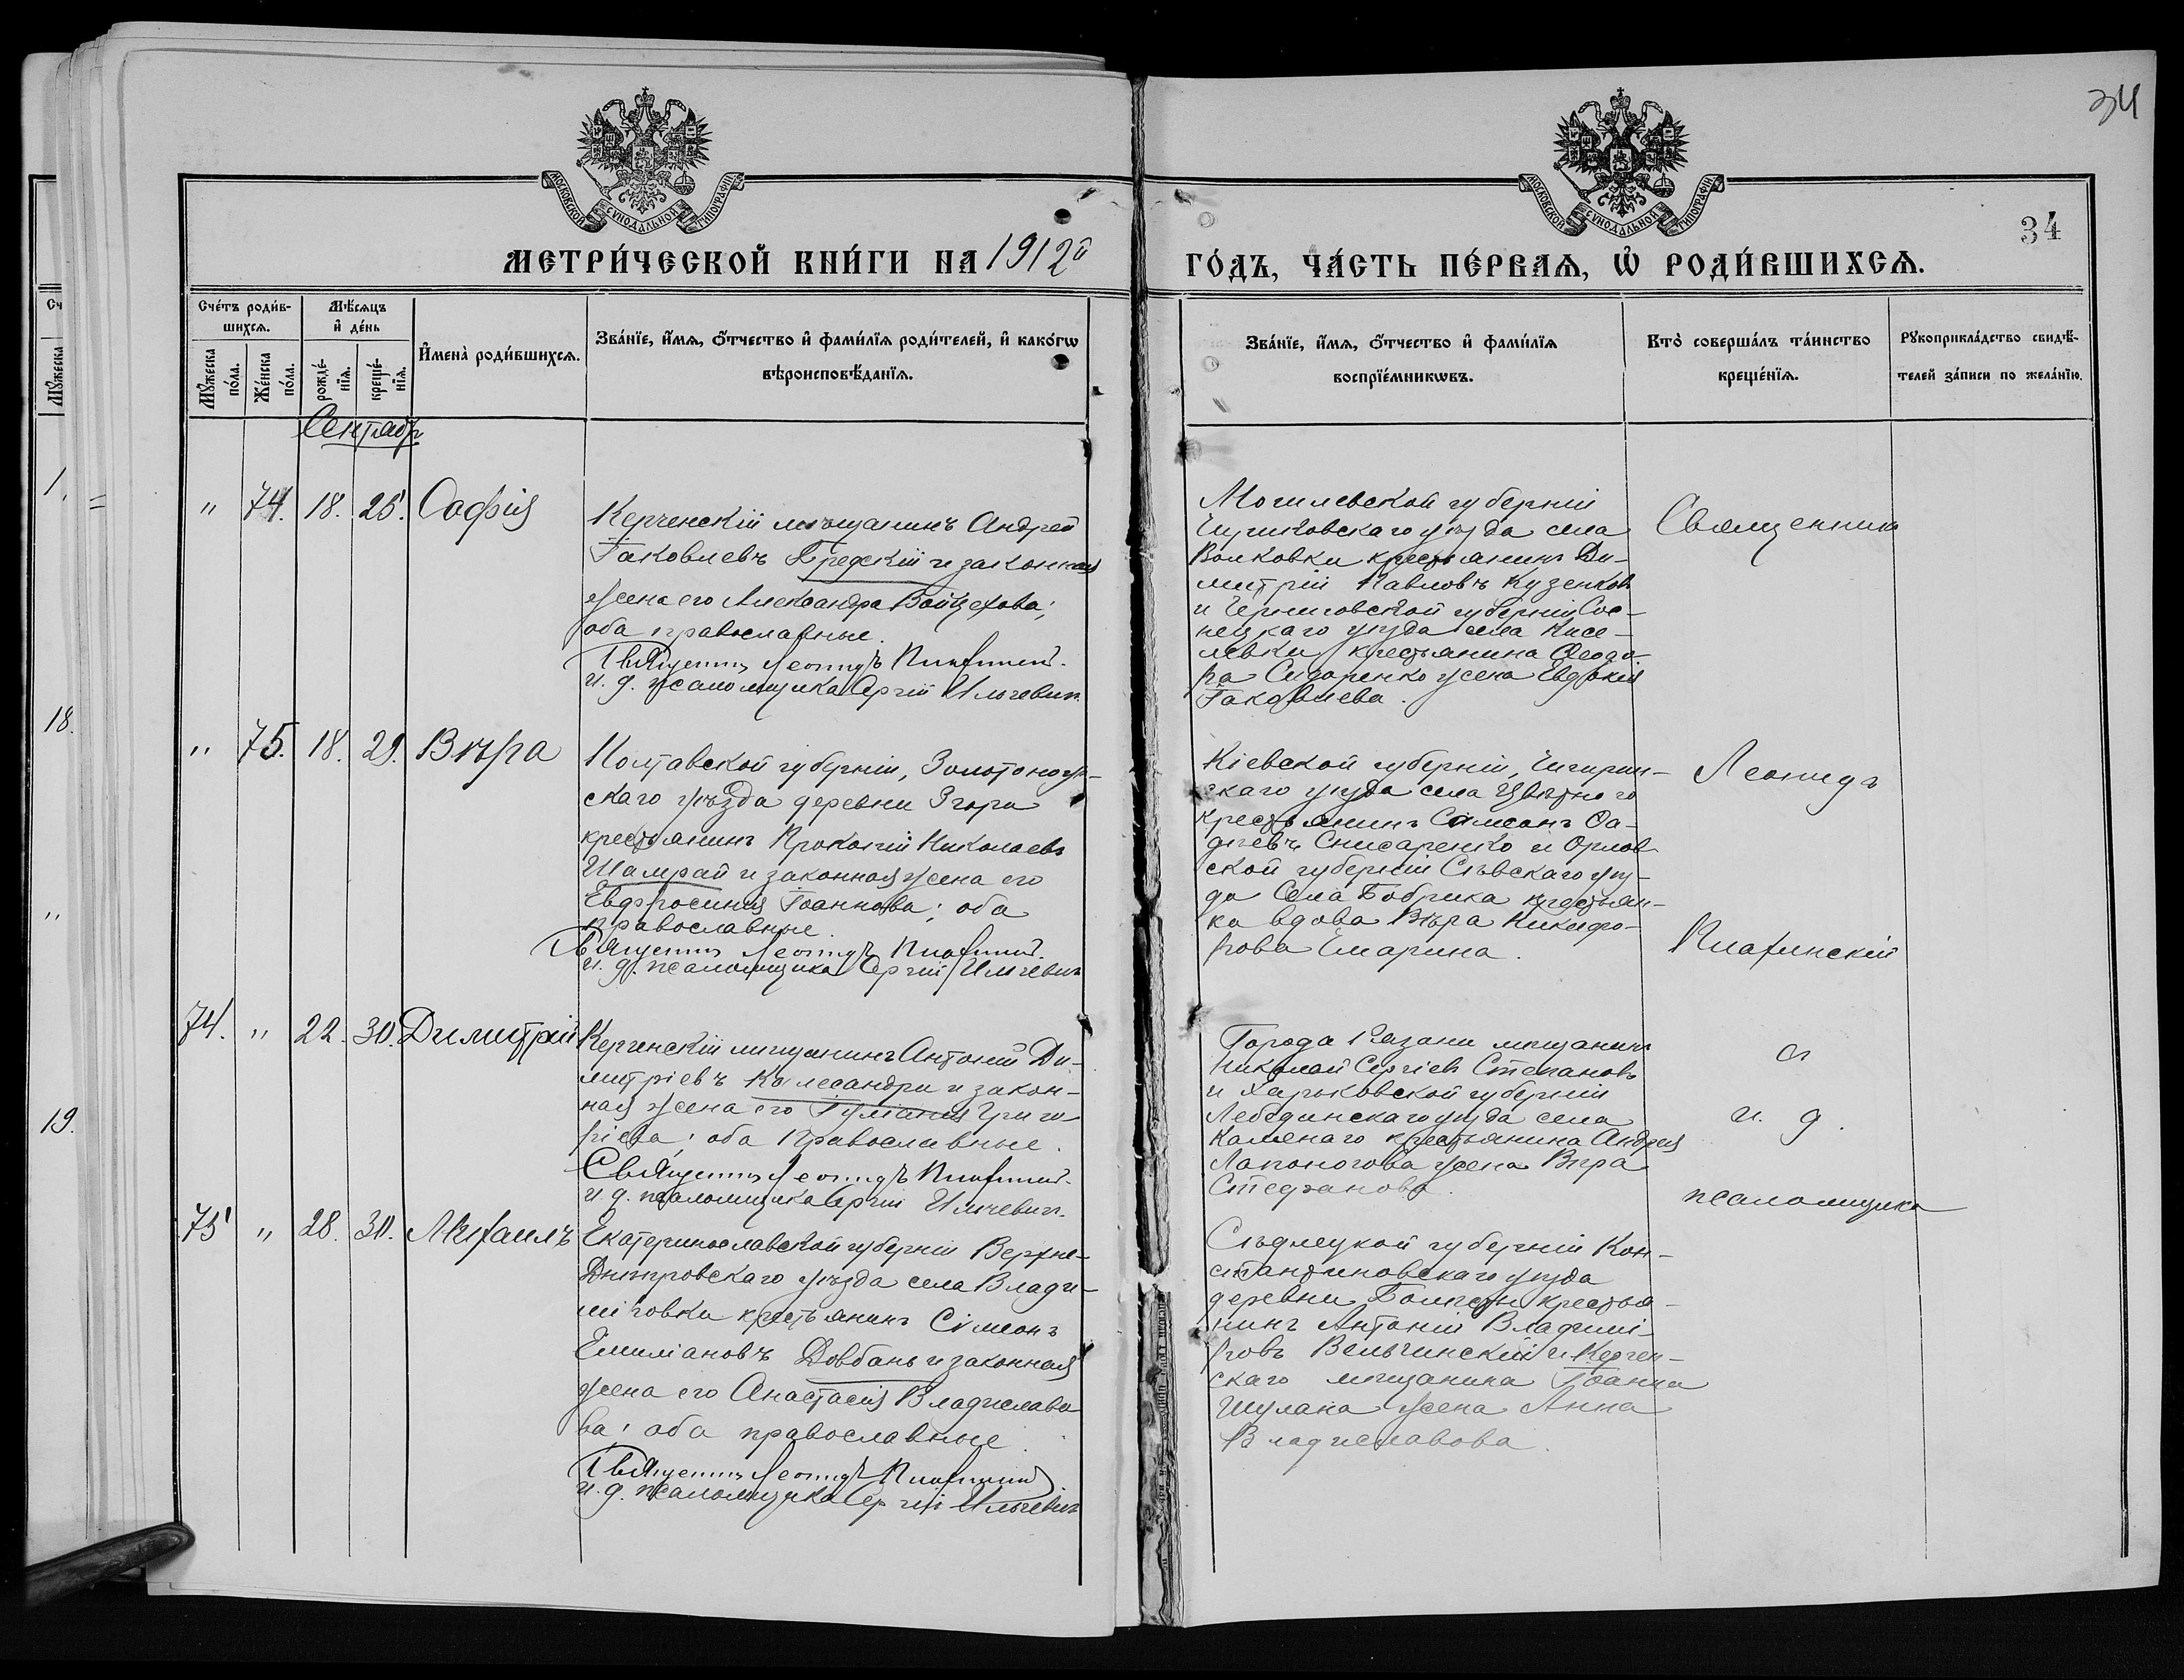 34
34
МОСКОВСКОЙ СУНОДАЛЬНОЙ ТИПОГРАФІИ
МОСКОВСКОЙ СУНОДАЛЬНОЙ ТИПОГРАФІИ
МЕТРИ́ЧЕСКОЙ КНИ́ГИ НА 1912й
ГО́ДЪ, ЧА́СТЬ ПЕ́РВАѦ, Ѡ РОДИ́ВШИХСѦ.
Сче́тъ роди́вшихсѧ.
Мꙋ́жеска по́ла.
Же́нска по́ла.
Мѣ́сѧцъ и҆ де́нь
рожде́нїѧ.
креще́нїѧ.
И҆мена̀ роди́вшихсѧ.
Зва́нїе, и҆́мѧ, ѻ҆́тчество и҆ фами́лїѧ роди́телей, и҆ како́гѡ
вѣроисповѣ́данїѧ.
Зва́нїе, и҆́мѧ, ѻ҆́тчество и҆ фами́лїѧ
воспрїе́мникѡвъ.
Кто̀ соверша́лъ та́инство
креще́нїѧ.
Рꙋкоприкла́дство свидѣ́телей за́писи по жела́нїю.
Сентябр
" 74. 18. 26. Софія
Керченскій мѣщанинъ Андрей
Іаковлевъ Предскій и законная
жена его Александра Войцехова;
оба православные.
Священникъ Леонидъ
и. д. псаломщика Сергій Ильчевич.
Могилевской губерніи
Чериковскаго уѣзда села
Волковки крестьянинъ Ди-
митрій Павловъ Кузенков
и Черниговской губерніи Сос-
ницкаго уѣзда села Кисе-
левки крестьянина Ѳеодо-
ра Сидоренко жена Евдокія
Іаковлева.
Священник
" 75. 18. 29. Вѣра
Полтавской губерніи, Золотонош-
скаго уѣзда деревни Згари
крестьянинъ Прокопій Николаевъ
Шамрай и законная жена его
Евфросинія Іоаннова; оба
православные.
Священникъ Леонидъ
и. д. псаломщика Сергій Ильчевич
Кіевской губерніи, Чигирин-
скаго уѣзда села Цвѣтного
крестьянинъ Самсонъ Ѳа-
дѣевъ Снисаренко и Орлов
ской губерніи Сѣвскаго уѣз-
да Села Бобрика крестьян-
ка вдова Вѣра Никифо-
рова Емарина.
Леонидъ
74. " 22. 30. Димитрій
Керченскій мѣщанинъ Антоній Ди-
митріевъ Калесандри и закон-
ная жена его Іуліанія Григо-
ріева; оба православные.
Священникъ Леонидъ
и. д. псаломщика Сергій Ильчевич.
Города Казани мѣщанинъ
Николай Сергіев Степановъ
и Харьковской губерніи
Лебединскаго уѣзда села
Каменаго крестьянина Андрея
Лапоногова жена Вѣра
Стефанова.
съ
и. д.
псаломщика
75 " 28. 30. Михаилъ
Екатеринославской губерніи Верхне-
Днѣпровскаго уѣзда села Влади-
міровки крестьянинъ Сімеонъ
Емиліановъ Довбань и законная
жена его Анастасія Владиславо-
ва; оба православные.
Священникъ Леонидъ
и. д. псаломщика Сергій Ильчевич
Сѣдлецкой губерніи Кон-
стантиновскаго уѣзда
деревни крестья-
нинъ Антоній Владимі-
ровъ Вельчинскій и Керчен-
скаго мѣщанина Іоанна
Шулака жена Анна
Владиславова.
1.
18.
"
19.